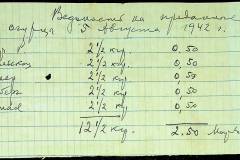 Ведомость на проданные
огурцы 5 Августа 1942 г.
2 1/2 кгр. 0,50
2 1/2 кгр. 0,50
2 1/2 кгр. 0,50
2 1/2 кгр. 0,50
2 1/2 кгр. 0,50
12 1/2 кгр. 2.50